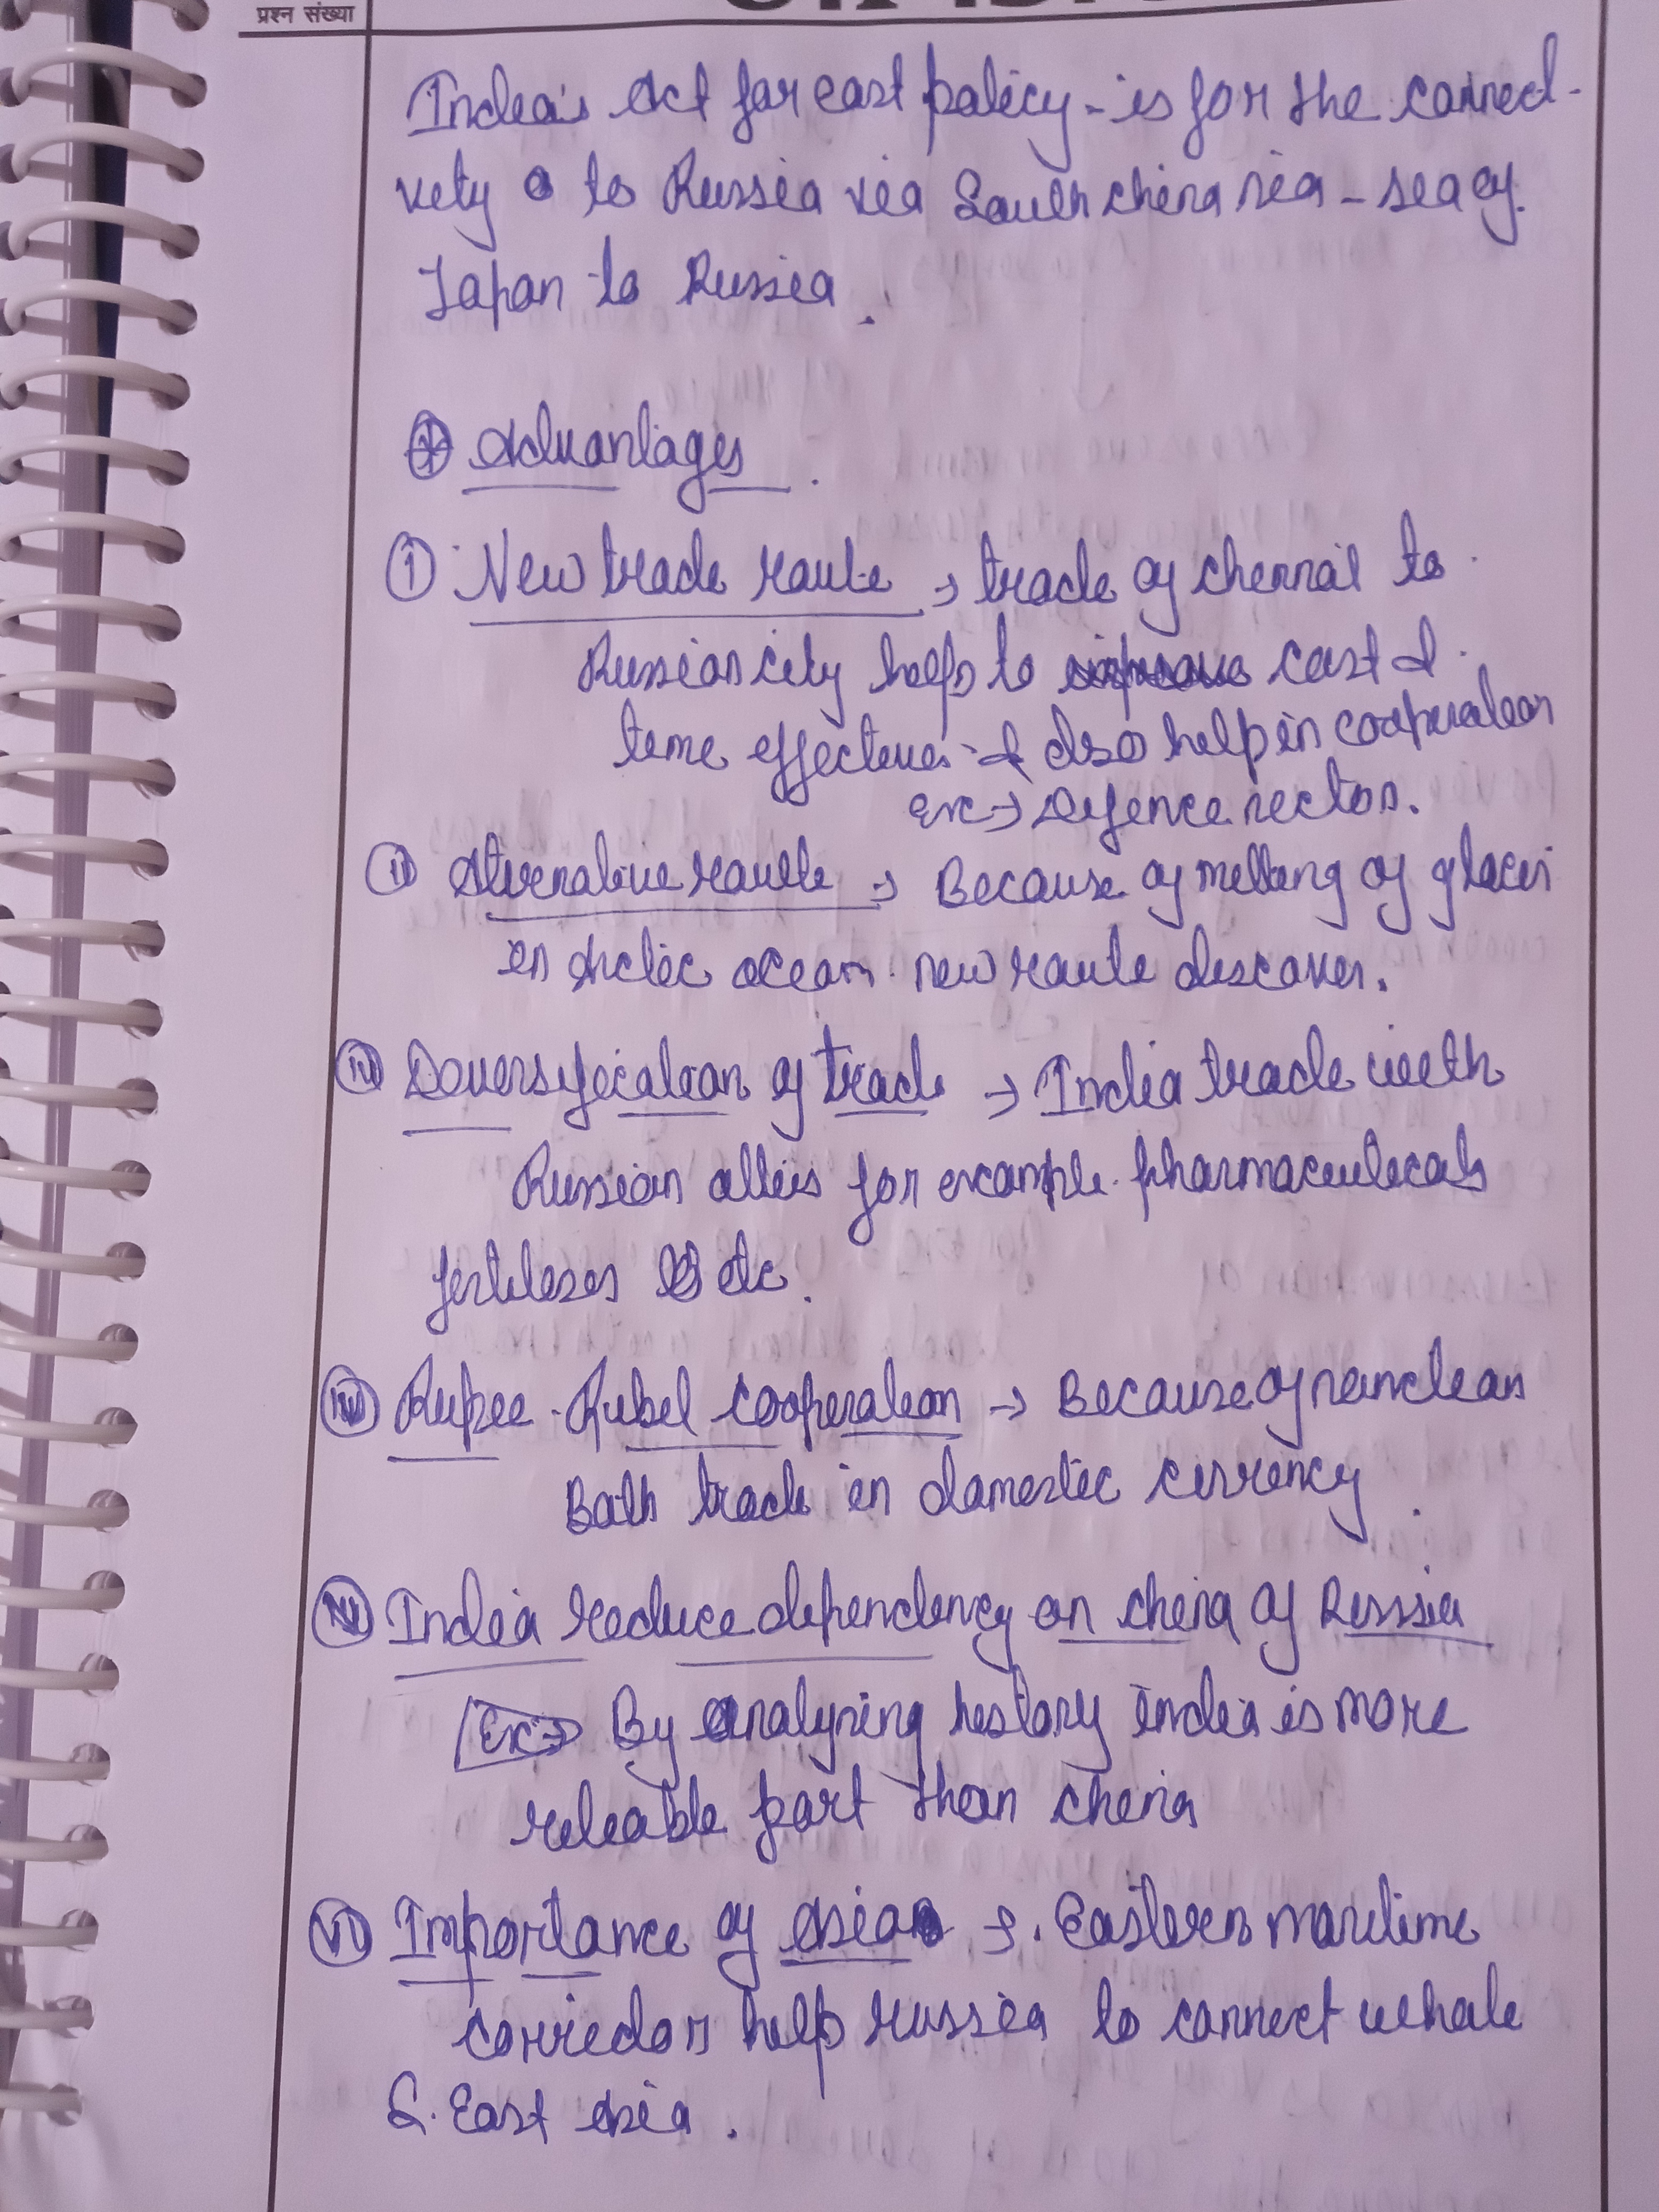 प्रश्न संख्या
India's Act far east policy - is for the connect-
vity to Russia via South china sea - sea of
Japan to Russia.
Advantages.
(i) New trade route → trade of chennai to
Russian city helps to cost &
time effective & also help in cooperation
Ex → Defence sector.
(ii) Alternative route → Because of melting of glacier
in Arctic ocean new route discover.
Diversification of trade → India trade with
Russian allies for example pharmaceuticals
fertilizer etc.
(iv) Rupee - Rubel cooperation → Because of sanction
Both trade in domestic currency.
India reduce dependency on china of Russia
Ex → By analysing history india is more
reliable part than china
(vi) Importance of Asia → Eastern maritime
corridor help russia to connect whole
S. East Asia.